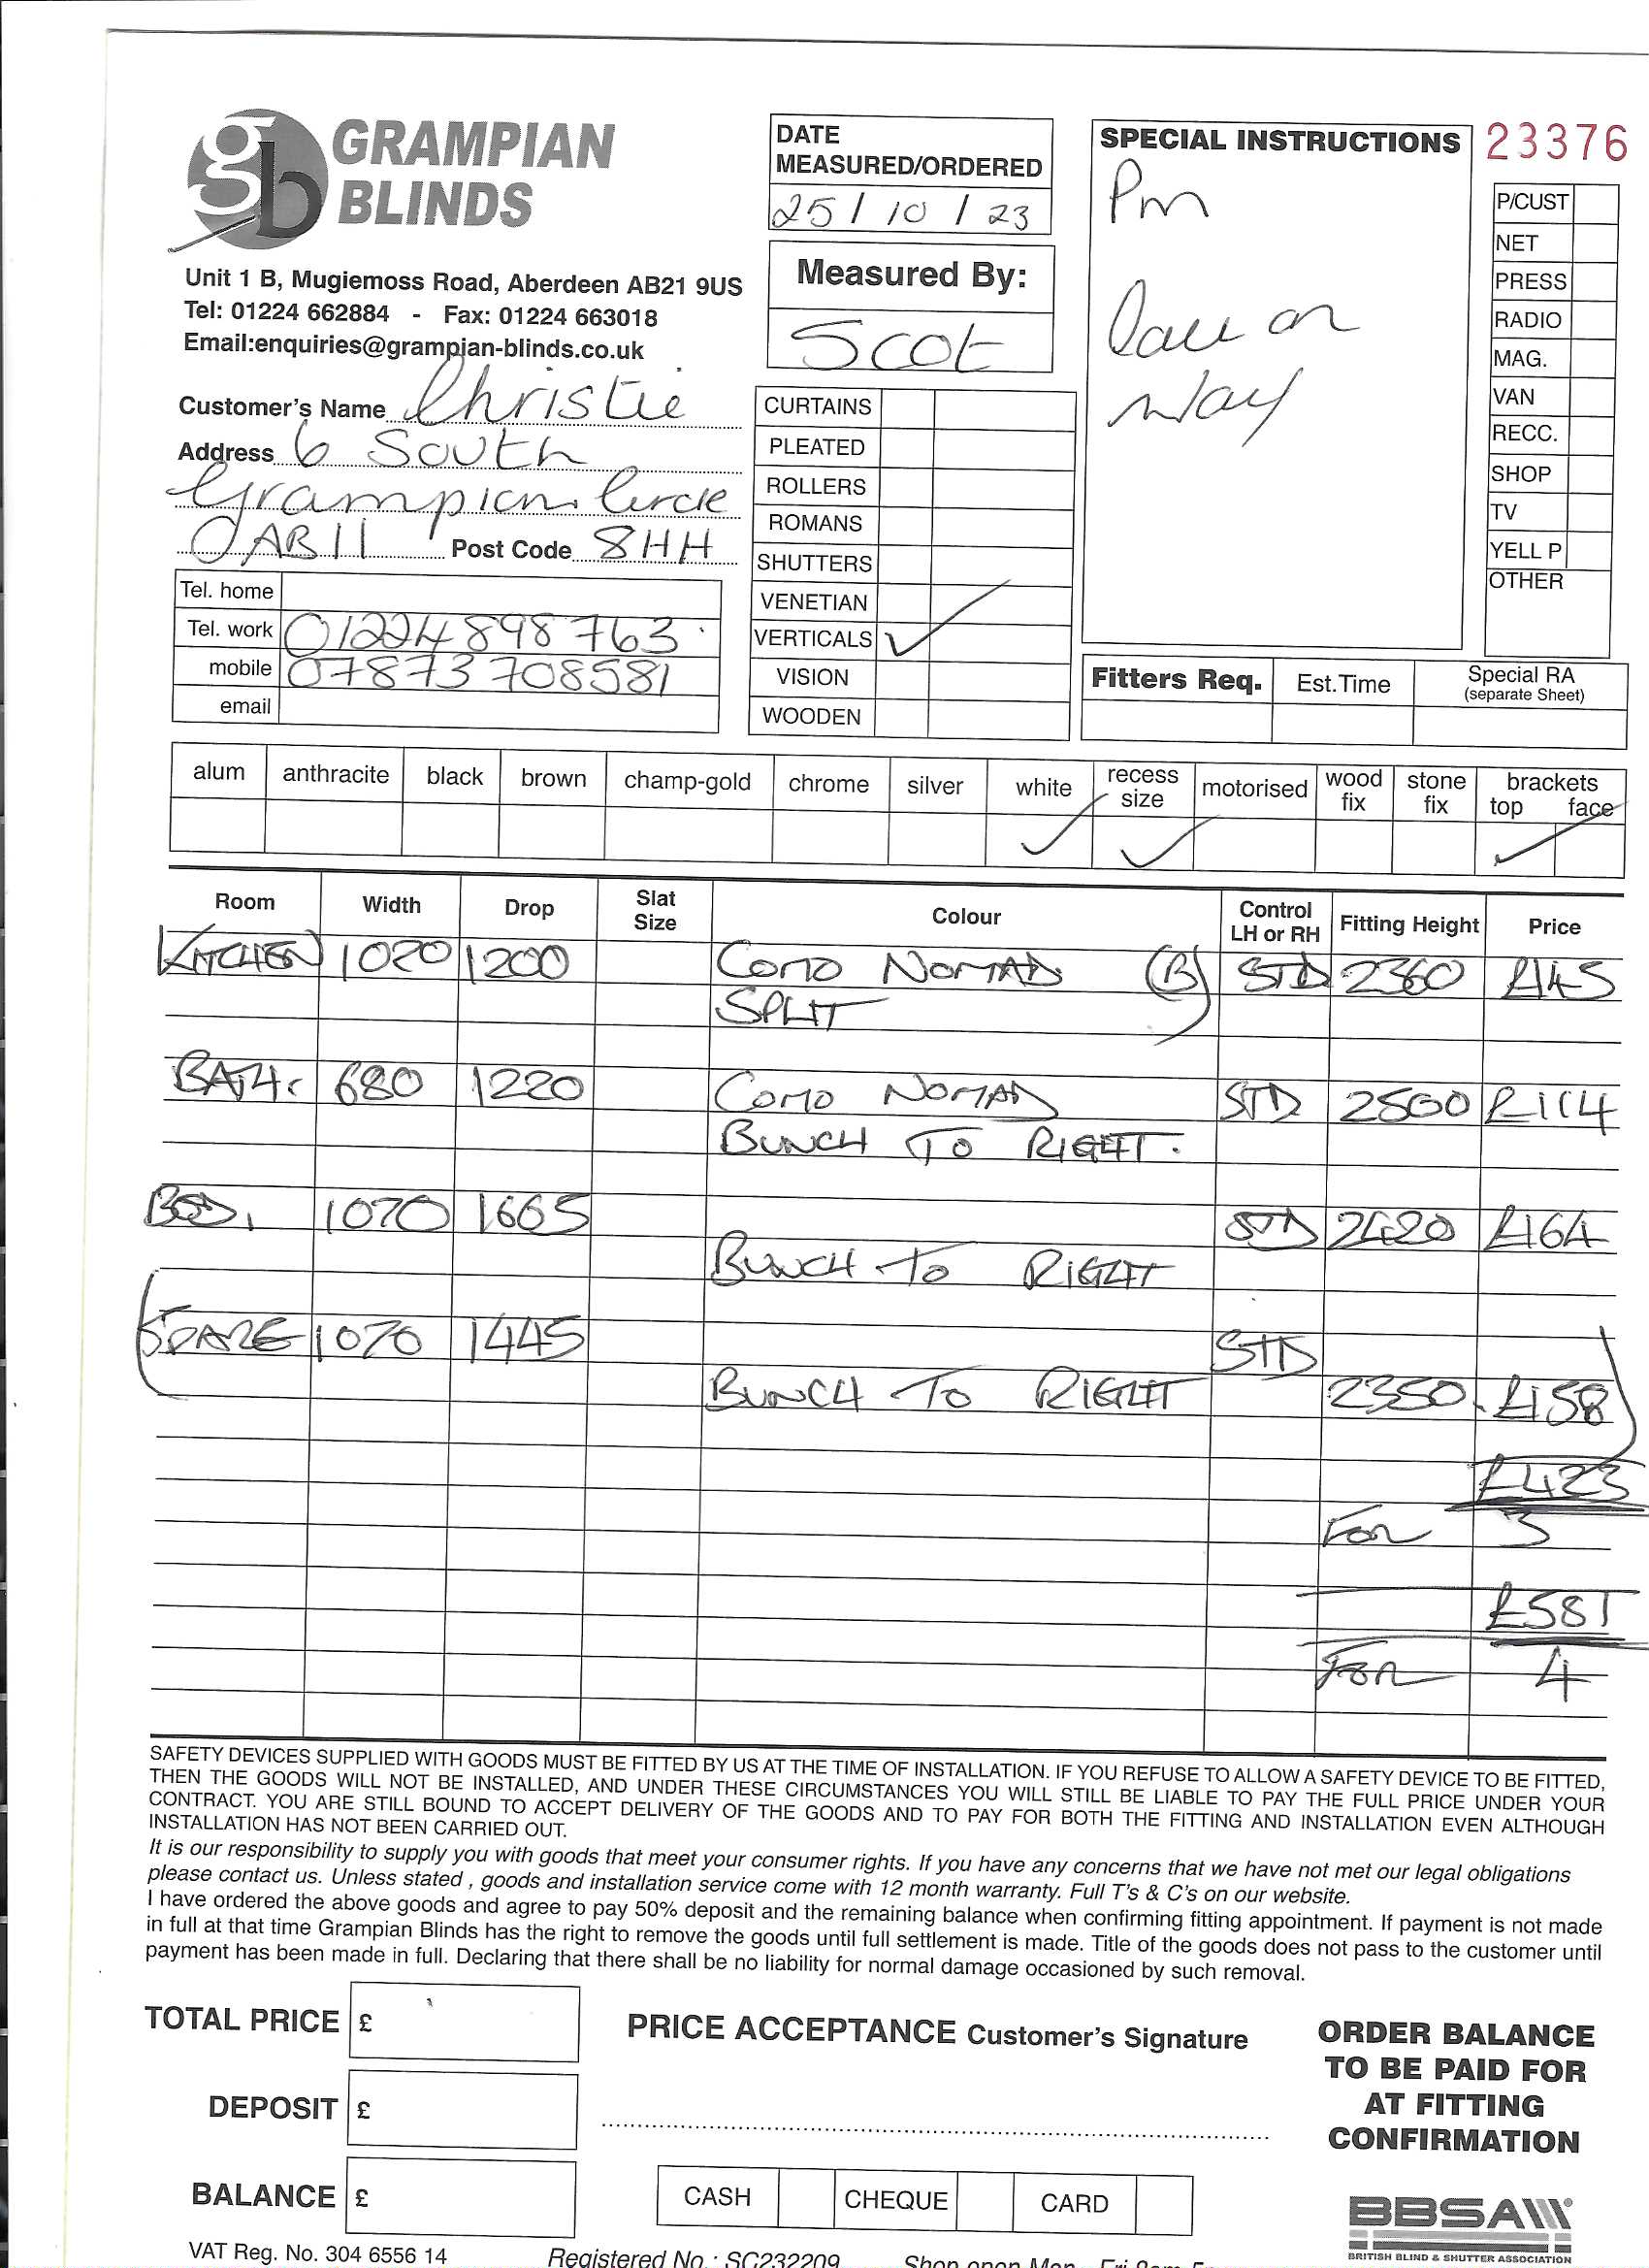 GRAMPIAN
BLINDS
Unit 1 B, Mugiemoss Road, Aberdeen AB21 9US
Tel: 01224 662884 - Fax: 01224 663018
Email:enquiries@grampian-blinds.co.uk
Customer's Name Christie
Address 6 South
Grampian Circle
AB11 Post Code 8HH
Tel. home
Tel. work 01224 898763
mobile 07873 708581
email
DATE
MEASURED/ORDERED
25 / 10 / 23
Measured By:
Scot
CURTAINS
PLEATED
ROLLERS
ROMANS
SHUTTERS
VENETIAN
VERTICALS ✓
VISION
WOODEN
SPECIAL INSTRUCTIONS
Pm
Call on
way
23376
P/CUST
NET
PRESS
RADIO
MAG.
VAN
RECC.
SHOP
TV
YELL P
OTHER
Fitters Req. Est.Time Special RA
(separate Sheet)
alum anthracite black brown champ-gold chrome silver white recess size motorised wood fix stone fix brackets top face
Room Width Drop Slat Size Colour Control LH or RH Fitting Height Price
KITCHEN 1020 1200 COMO NOMAD (B) STD 2360 £145
SPLIT
BATH. 680 1220 COMO NOMAD STD 2500 £114
BUNCH TO RIGHT.
BED, 1070 1665 STD 2420 £164
BUNCH TO RIGHT
SPARE 1070 1445 STD
BUNCH TO RIGHT 2350. £158
£423
FOR 3
£581
FOR 4
SAFETY DEVICES SUPPLIED WITH GOODS MUST BE FITTED BY US AT THE TIME OF INSTALLATION. IF YOU REFUSE TO ALLOW A SAFETY DEVICE TO BE FITTED,
THEN THE GOODS WILL NOT BE INSTALLED, AND UNDER THESE CIRCUMSTANCES YOU WILL STILL BE LIABLE TO PAY THE FULL PRICE UNDER YOUR
CONTRACT. YOU ARE STILL BOUND TO ACCEPT DELIVERY OF THE GOODS AND TO PAY FOR BOTH THE FITTING AND INSTALLATION EVEN ALTHOUGH
INSTALLATION HAS NOT BEEN CARRIED OUT.
It is our responsibility to supply you with goods that meet your consumer rights. If you have any concerns that we have not met our legal obligations
please contact us. Unless stated , goods and installation service come with 12 month warranty. Full T's & C's on our website.
I have ordered the above goods and agree to pay 50% deposit and the remaining balance when confirming fitting appointment. If payment is not made
in full at that time Grampian Blinds has the right to remove the goods until full settlement is made. Title of the goods does not pass to the customer until
payment has been made in full. Declaring that there shall be no liability for normal damage occasioned by such removal.
TOTAL PRICE £
DEPOSIT £
BALANCE £
PRICE ACCEPTANCE Customer's Signature
CASH CHEQUE CARD
ORDER BALANCE
TO BE PAID FOR
AT FITTING
CONFIRMATION
BBSA
BRITISH BLIND & SHUTTER ASSOCIATION
VAT Reg. No. 304 6556 14 Registered No.: SC232209 Shop open Mon - Fri